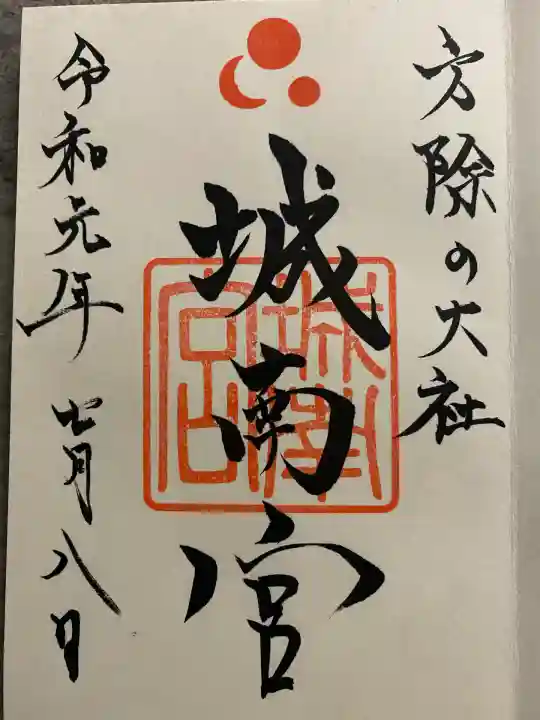 方除の大社
城南宮
城南宮
令和元年七月八日